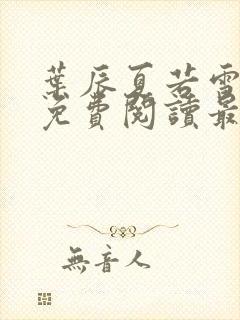 葉辰夏若雪
免費閱讀最
無音人